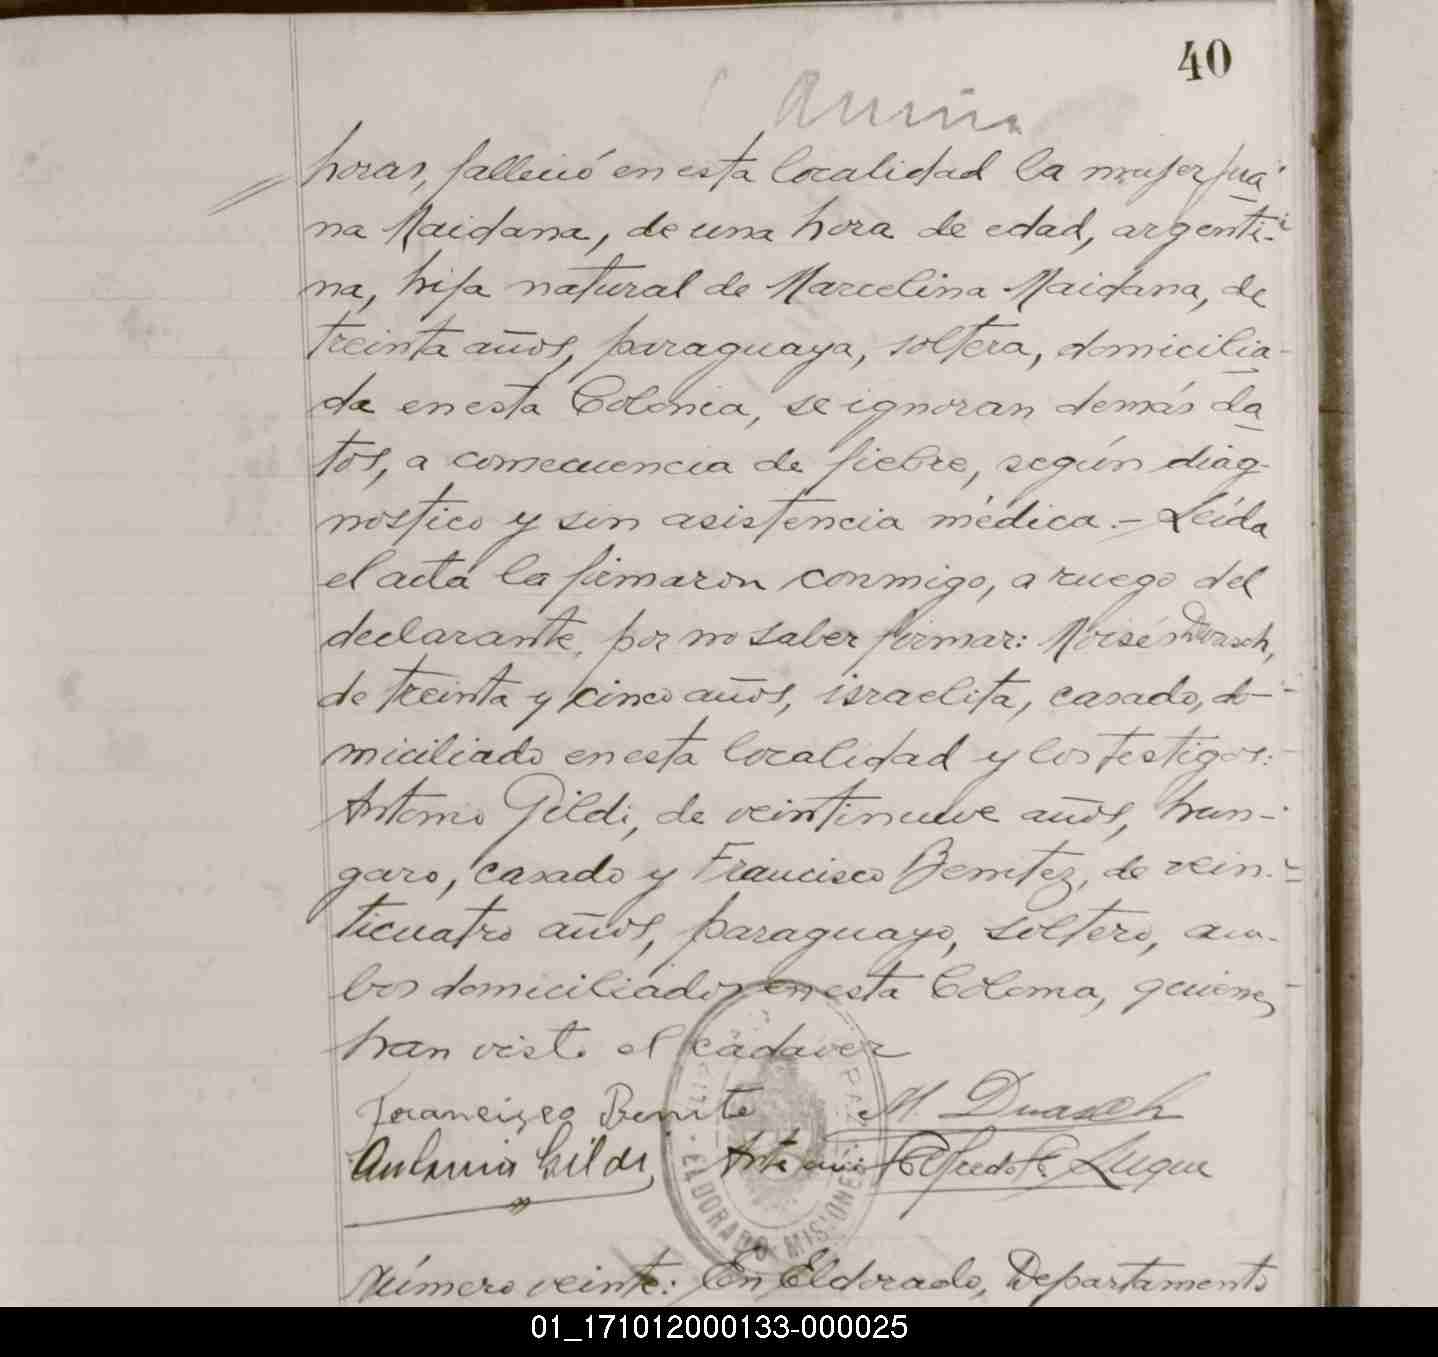 40
horas, falleció en esta localidad la mujer Jua
na Maidana, de una hora de edad, argenti-
na, hija natural de Marcelina Maidana, de
treinta años, paraguaya, soltera, domicilia-
da en esta Colonia, se ignoran demás da
tos, a consecuencia de fiebre, según diag-
nostico y sin asistencia médica.- Leída
el acta la firmaron conmigo, a ruego del
declarante, por no saber firmar: Moisés Duasch,
de treinta y cinco años, israelita, casado, do-
miciliado en esta localidad y los testigos:
Antonio Gildi, de veintinueve años, hun-
garo, casado y Francisco Benitez, de vein-
ticuatro años, paraguayo, soltero, am-
bos domiciliados en esta Colonia, quienes
han visto el cadaver
Francizco Benite M. Duasch
Antonio Gildi Ante mi: Alfredo C. Luque
ELDORADO MISIONES
Número veinte: En Eldorado, Departamento
01_171012000133-000025